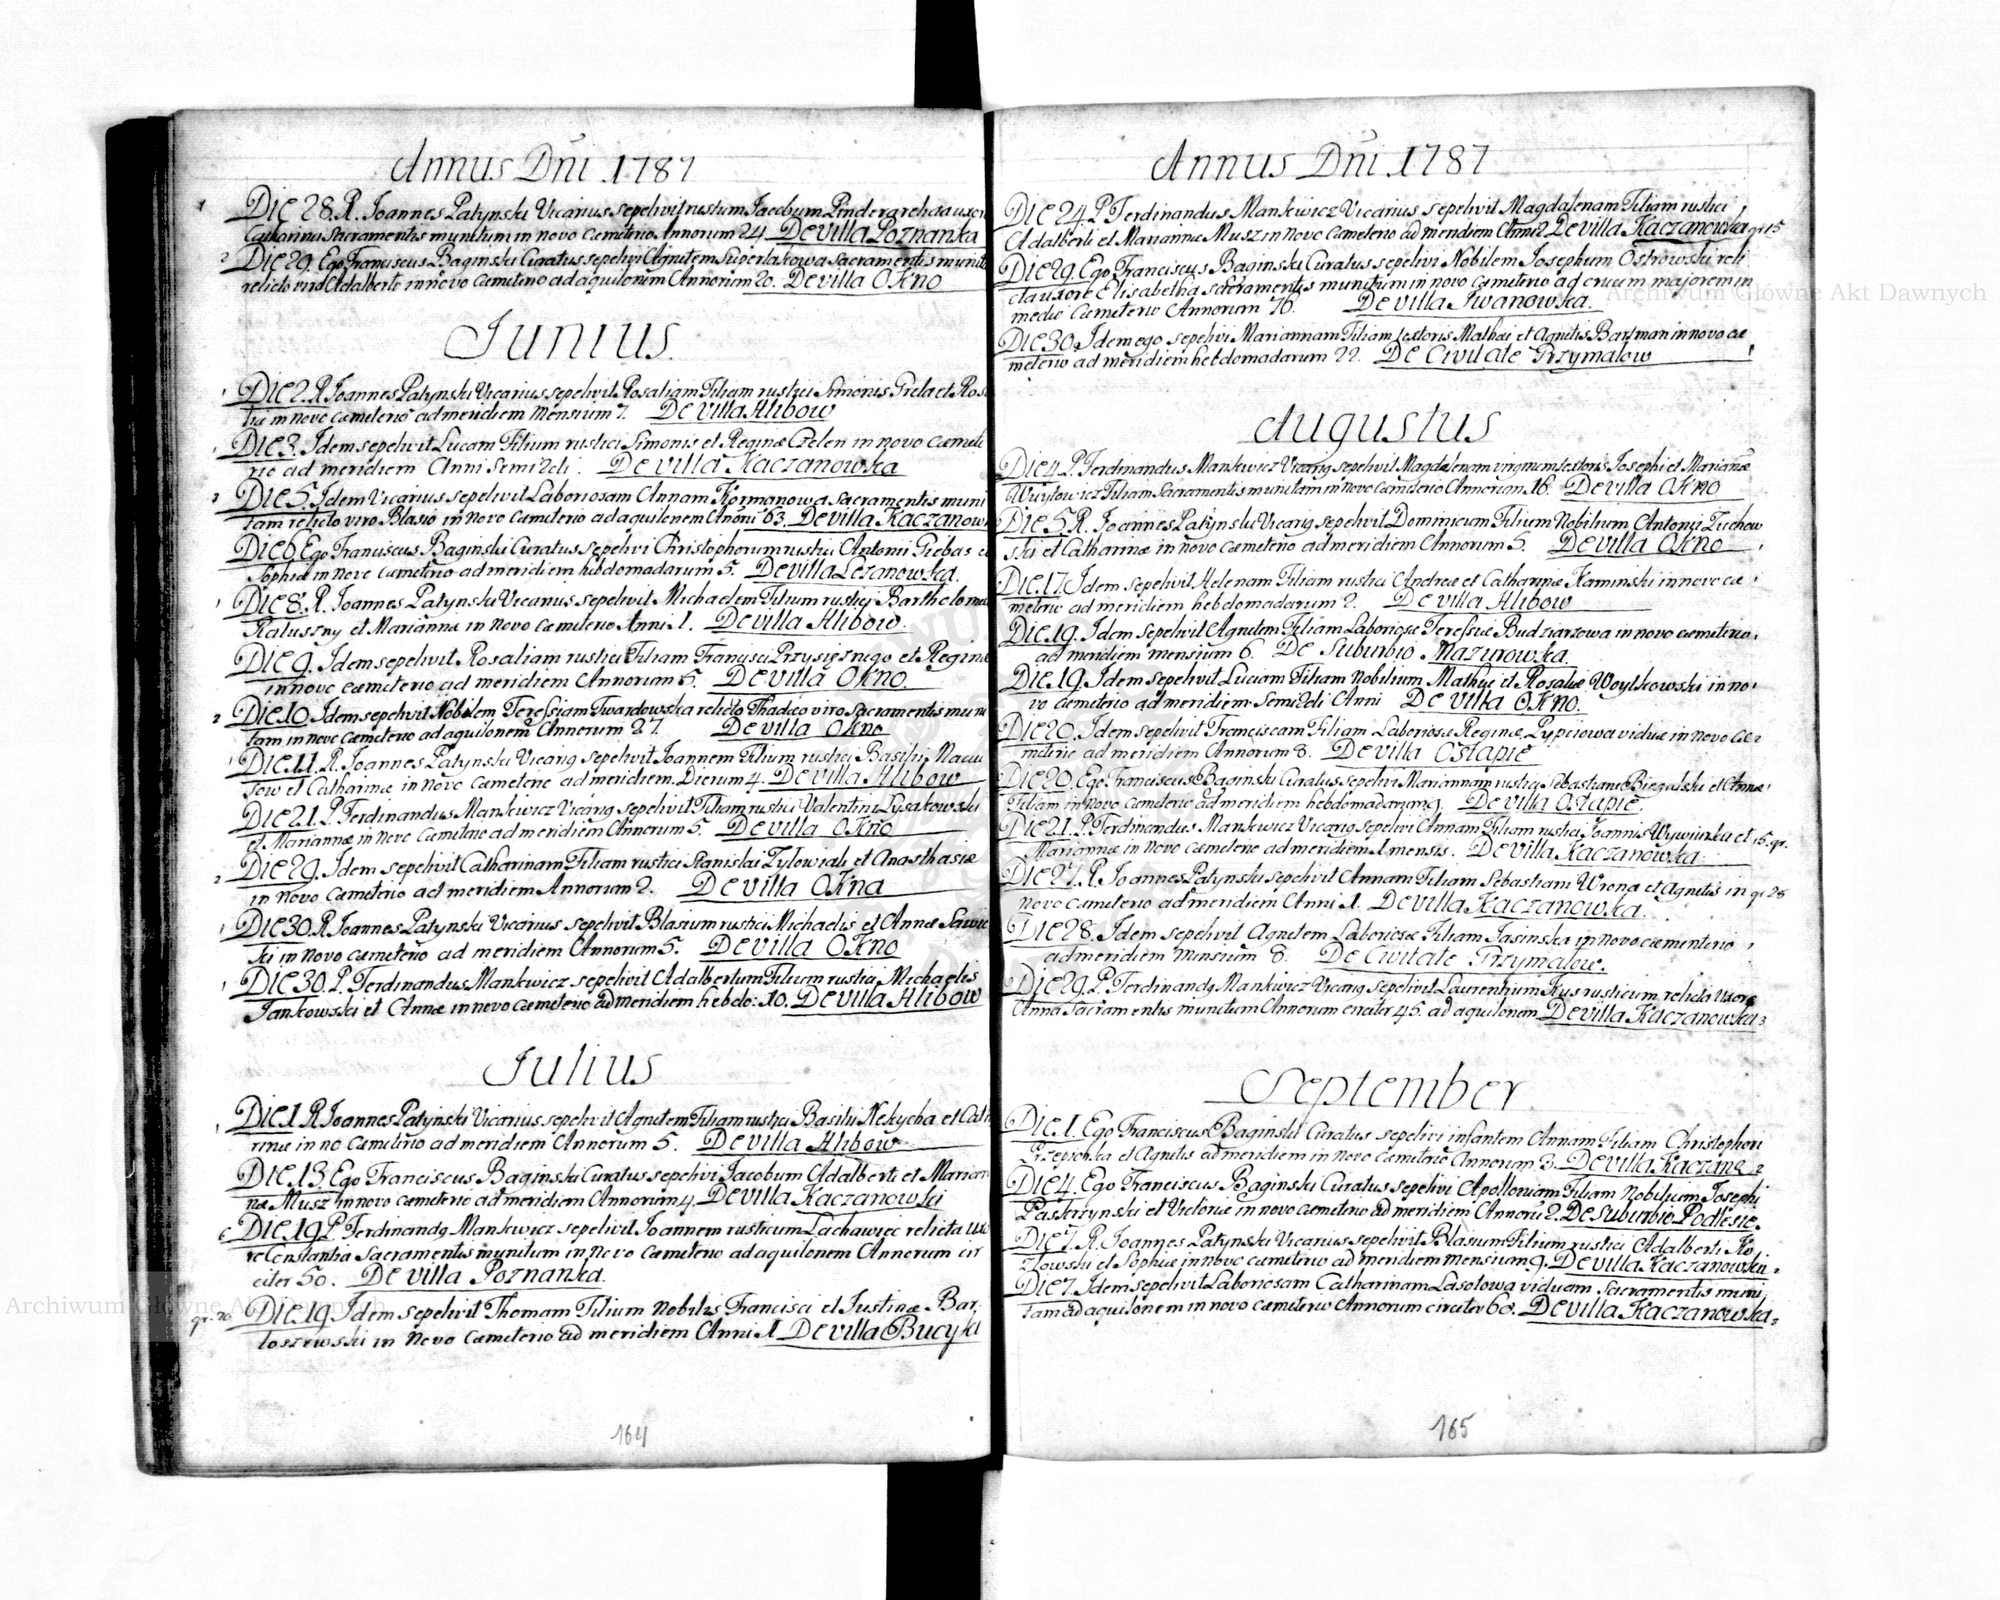 Annus Dñi 1787
1 Die 28. R. Joannes Patynski Vicarius sepelivit rusticum Jacobum Pindera relicta uxor
Catharina sacramentis munitum in novo cæmeterio Annorum 24 De villa Poznanka
2 Die 29. Ego Franciscus Baginski Curatus sepelivi Agnitem sacramentis munit
relicto viro Adalberto in novo cæmeterio ad aquilonem Annorum 20. De villa OKno
Junius
1 Die 2. R. Joannes Patynski Vicarius sepelivit Rosaliam Filiam rustici Simonis Grela et Rosa
liæ in novo cæmeterio ad meridiem Mensium 7. De villa Hlibow
1 Die 3. Idem sepelivit Lucam Filium rustici Simonis et Reginæ Czelen in novo cæmete
rio ad meridiem Anni Semi 2di. De villa Kaczanowka
3 Die 5. Idem Vicarius sepelivit Laboriosam Annam Kormanowa sacramentis muni
tam relicto viro Blasio in novo cæmeterio ad aquilonem Anorũ 63. De villa Kaczanow
Die 6 Ego Franciscus Baginski Curatus sepelivi Christophorum rustici Antonii Giebas et
Sophiæ in novo cæmeterio ad meridiem hebdomadarum 5. De villa Lezanowka.
1 Die 8. R. Joannes Patynski Vicarius sepelivit Michaelem Filium rustici Bartholomei
Kaluszny et Marianna in novo cæmeterio Anni 1. De villa Hlibow.
Die 9. Idem sepelivit Rosaliam rustici Filiam Francisci Przysięznego et Reginæ
in novo cæmeterio ad meridiem Annorum 5. De villa OKno.
2 Die 10. Idem sepelivit Nobilem Teressiam Twardowska relicto Thadæo viro Sacramentis muni
tam in novo cæmeterio ad aquilonem Annorum 27. De villa OKno
1 Die 11. R. Joannes Patynski Vicarig sepelivit Joannem Filium rustici Basilii Maciu
sow et Catharinæ in novo cæmeterio ad meridiem Dierum 4. De villa Hlibow
Die 21. P. Ferdinandus Mankwicz Vicarig sepelivit Filiam rustici Valentini Lysakowski
et Mariannæ in novo cæmeterio ad meridiem Annorum 5. De villa OKno
2 Die 29. Idem sepelivit Catharinam Filiam rustici Stanislai Zylowiak et Anasthasiæ
in novo cæmeterio ad meridiem Annorum 2. De villa OKna
1 Die 30. R. Joannes Patynski Vicarius sepelivit Blasium rustici Michaelis et Annæ Sawic
ki in novo cæmeterio ad meridiem Annorum 5. De villa OKno
1 Die 30. P. Ferdinandus Mankwicz sepelivit Adalbertum Filium rustici Michaelis
Jankowski et Annæ in novo cæmeterio ad meridiem hebdo: 10. De villa Hlibow
Julius
1 Die 1 R. Joannes Patynski Vicarius sepelivit Agnitem Filiam rustici Basilii Nekycha et Catha
rinæ in no cæmeterio ad meridiem Annorum 5. De villa Hlibow
Die 13. Ego Franciscus Baginski Curatus sepelivi Jacobum Adalberti et Marian
næ Musz in novo cæmeterio ad meridiem Annorum 4. De villa Kaczanowki
6 Die 19 P. Ferdinandg Mankwicz sepelivit Joannem rusticum Lachawiec relicta uxo
re Constantia Sacramentis munitum in novo cæmeterio ad aquilonem Annorum cir
citer 50. De villa Poznanka.
gr. 20 Die 19 Idem sepelivit Thomam Filium nobilis Francisci et Justinæ Bar
toszewski in novo cæmeterio ad meridiem Anni 1 De villa Bucyki
164
Annus Dñi 1787
Die 24 P. Ferdinandus Mankwicz Vicarius sepelivit Magdalenam Filiam rustici
Adalberti et Mariannæ Musz in novo cæmeterio ad meridiem Anni 2 De villa Kaczanowka gr 15
Die 29. Ego Franciscus Baginski Curatus sepelivi Nobilem Josephum Ostrowski reli
cta uxore Elisabetha sacramentis munitum in novo cæmeterio ad crucem majorem in
medio cæmeterio Annorum 76. De villa Iwanowka.
Die 30. Idem ego sepelivi Mariannam Filiam textoris Mathæi et Agnitis Bartman in novo cæ
meterio ad meridiem hebdomadarum 22. De Civitate Grzymalow
Augustus
Die 4. P. Ferdinandus Mankwicz Vicarig sepelivit Magdalenam virginem textoris Josephi et Mariannæ
Woytowicz Filiam Sacramentis munitam in novo cæmeterio Annorum 16. De villa OKno
Die 5 R. Joannes Patynski Vicarig sepelivit Dominicum Filium Nobilium Antonii Zuchow
ski et Catharinæ in novo cæmeterio ad meridiem Annorum 5. De villa OKno
Die 17. Idem sepelivit Helenam Filiam rustici Andreæ et Catharinæ Kaminski in novo cæ
meterio ad meridiem hebdomadarum 2. De villa Hlibow
Die 19. Idem sepelivit Agnitem Filiam Laboriosæ Teressiæ Budziarzowa in novo cæmeterio
ad meridiem mensium 6. De Suburbio Mazurowka.
Die 19. Idem sepelivit Luciam Filiam Nobilium Mathiæ et Rosaliæ Woytkowski in no
vo cæmeterio ad meridiem Semi 2di Anni De villa OKno.
Die 20. Idem sepelivit Franciscam Filiam Laboriosæ Reginæ Lypciowa viduæ in novo cæ
meterio ad meridiem Annorum 8. De villa Ostapie
Die 20. Ego Franciscus Baginski Curatus sepelivi Mariannam rustici Sebastiani Biegalski et Annæ
Filiam in novo cæmeterio ad meridiem hebdomadarum 9. De villa Ostapie.
Die 21. P. Ferdinandus Mankwicz Vicarig sepelivi Annam Filiam rustici Joannis Wywiurka et 15. gr.
Mariannæ in novo cæmeterio ad meridiem 1 mensis. De villa Kaczanowka.
Die 27. R. Joannes Patynski sepelivit Annam Filiam Sebastiani Wrona et Agnitis in gr 28
novo cæmeterio ad meridiem Anni 1. De villa Kaczanowka.
Die 28. Idem sepelivit Agnitem Laboriosæ Filiam Jasinska in novo cæmenterio
ad meridiem mensium 8. De Civitate Grzymalow.
Die 29. P. Ferdinandg Mankwicz Vicarig sepelivit Laurentium Kus rusticum relicta uxore
Anna Sacramentis munitum Annorum circiter 45. ad aquilonem De villa Kaczanowka
September
Die 1. Ego Franciscus Baginski Curatus sepelivi infantem Annam Filiam Christophori
Grzepichka et Agnitis ad meridiem in novo cæmeterio Annorum 3. De villa Kaczano
Die 4. Ego Franciscus Baginski Curatus sepelivi Apolloniam Filiam Nobilium Josephi
Pastrzynski et Victoriæ in novo cæmeterio ad meridiem Annorũ 2. De Suburbio Podlesie.
Die 7. R. Joannes Patynski Vicarius sepelivit Blasium Filium rustici Adalberti Ko
zlowski et Sophiæ in novo cæmeterio ad meridiem mensium 9. De villa Kaczanowka
Die 7. Idem sepelivit Laboriosam Catharinam Lasotowa viduam Sacramentis muni
tam ad aquilonem in novo cæmeterio Annorum circiter 60. De villa Kaczanowka
165
Archiwum Główne Akt Dawnych
Archiwum Główne Akt Dawnych